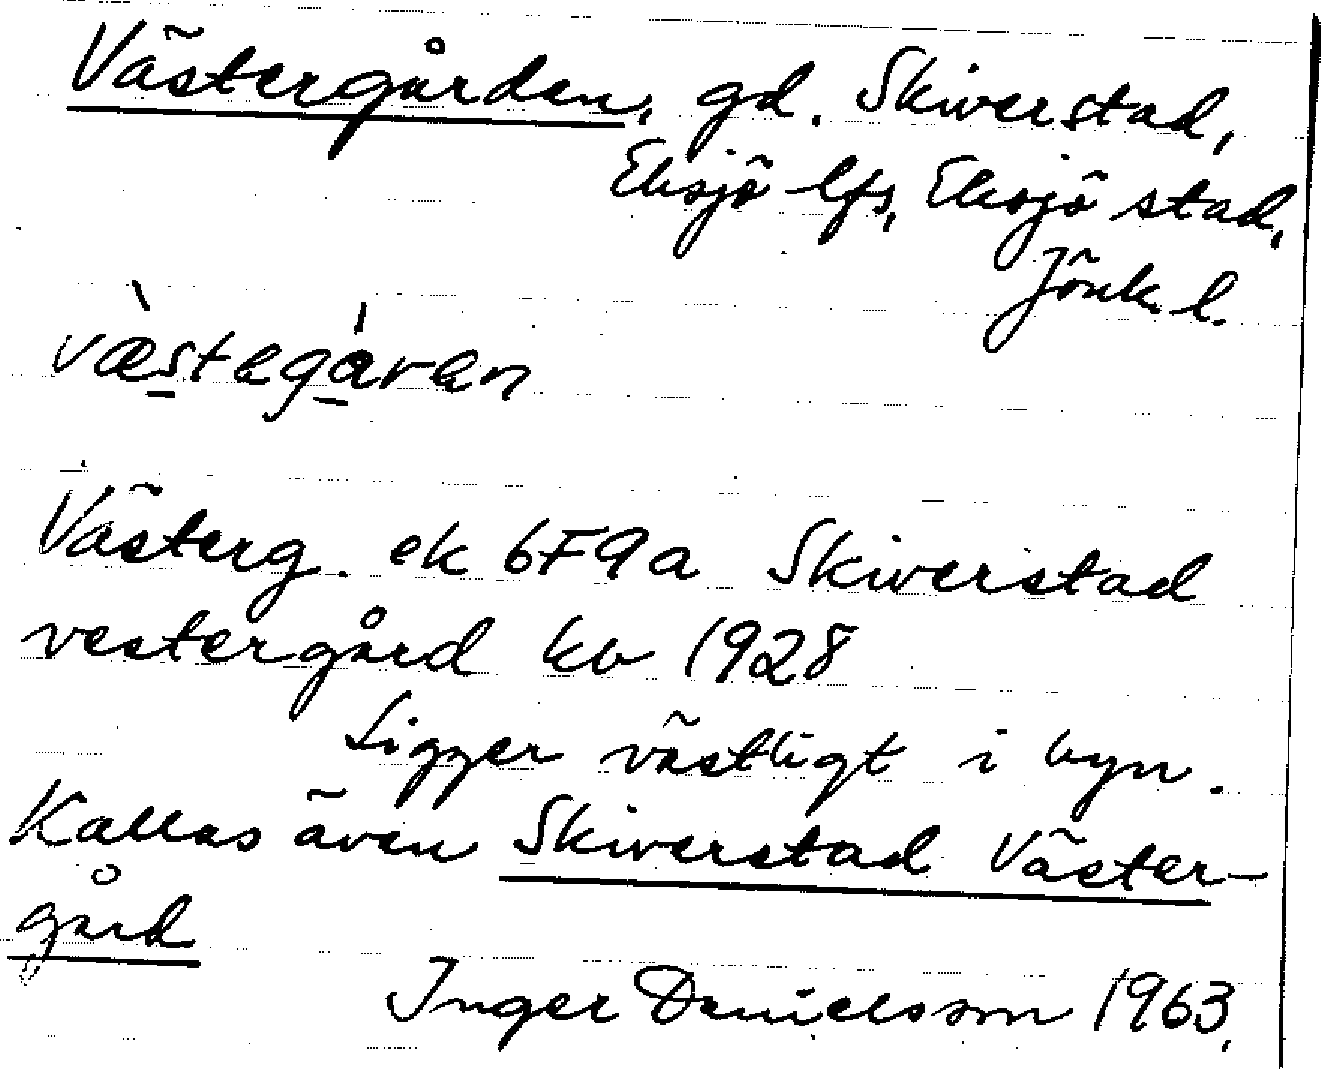 Västergården, gd. Skiverstad,
Eksjö lfs, Eksjö stad,
Jönk. l.
væ̀stegáren
Västerg. ek 6F9a Skiverstad
vestergård kb 1928
Ligger västligt i byn.
Kallas även Skiverstad Väster-
gård
Inger Danielsson 1963.